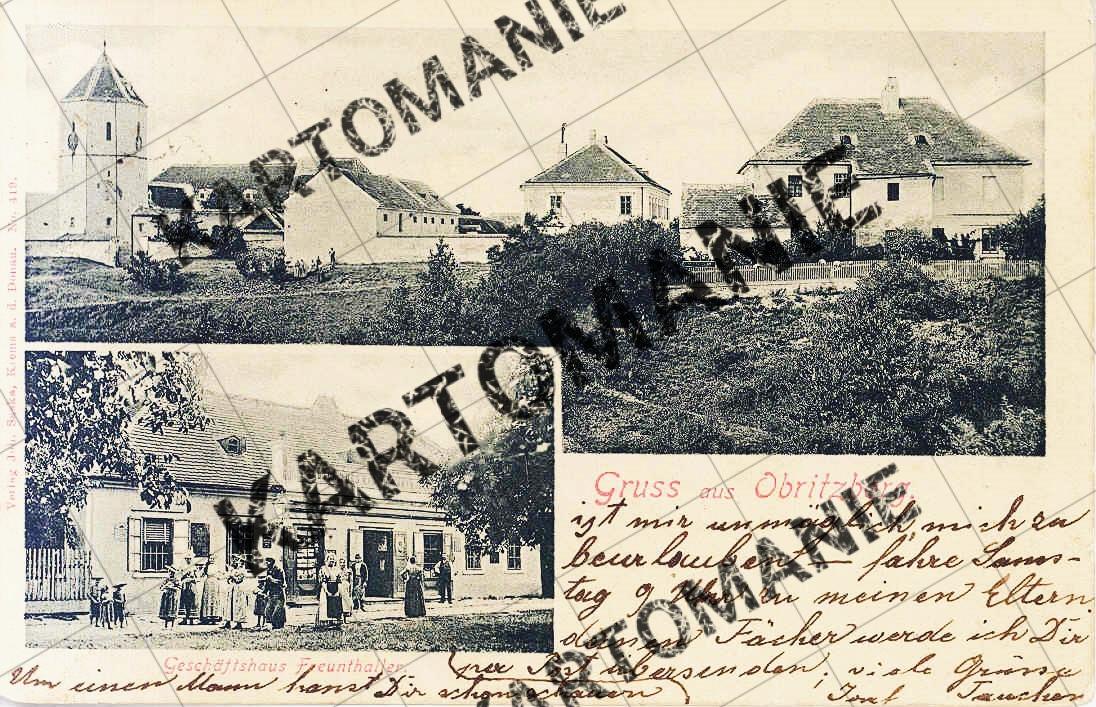 Verlag Nr. 419.
Krems a. d. Donau.
KARTOMANIE
KARTOMANIE
KARTOMANIE
KARTOMANIE
Gruss aus Obritzberg.
ist mir unmöglich mich zu
beurlauben — fahre Sams-
tag 9 Uhr zu meinen Eltern
deinen Fächer werde ich Dir
per Post übersenden; viele Grüsse
Geschäftshaus Freunthaller
Um einen Mann kanst Dir schon schauen